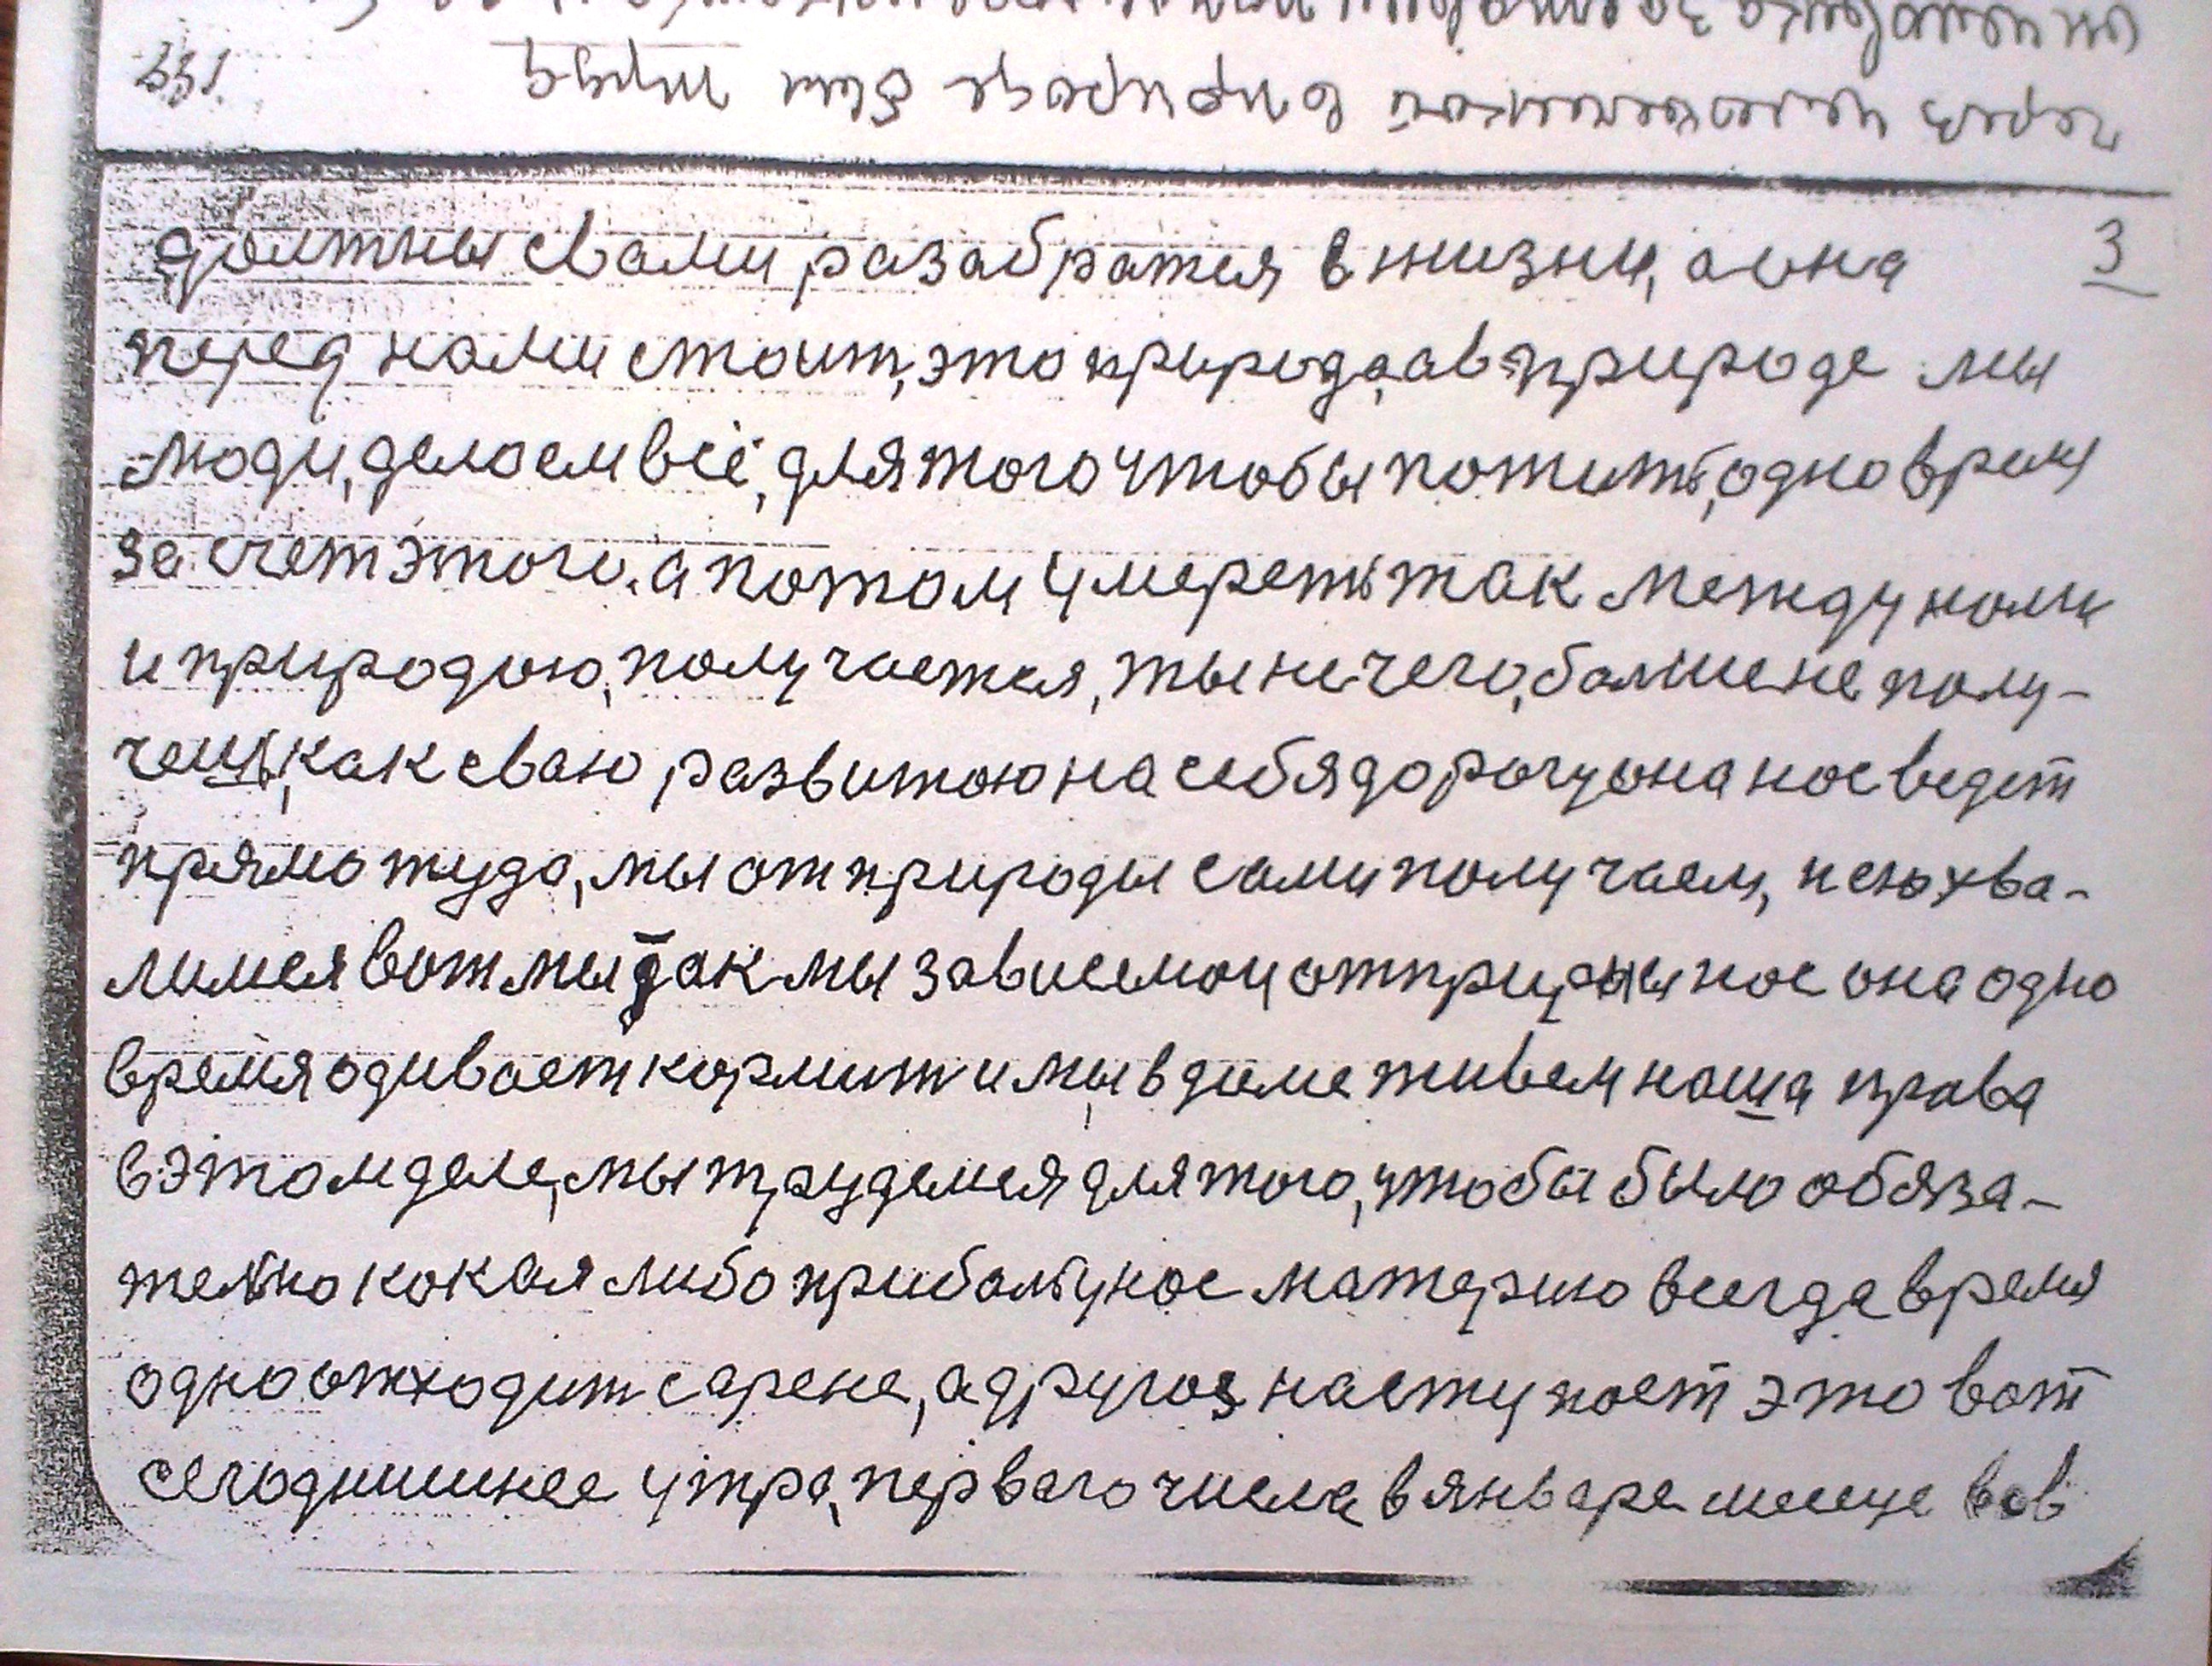 231.
3
должны свами разабратся в жизни, а она
перед нами стоит, это природа, а в природе мы
люди, делаем всё, для того чтобы пожить, одно время
за счет этого. а потом умереть так между нами
и природою, получается, ты не чего, болше не полу-
чешь, как сваю развитою на себя дорогу она нас ведет
прямо туда, мы от природы сами получаем, и ею хва-
лимся вот мы так мы зависемои от природы нас она одно
время одивает кормит и мы в доме живем наша права
в этом деле, мы трудемся для того, чтобы было обяза-
тельно кокая либо прибаль у нас материю всегда время
одно отходит с арене, а другоя наступает это вот
сегоднишнее утра, первого числа в январе месеце